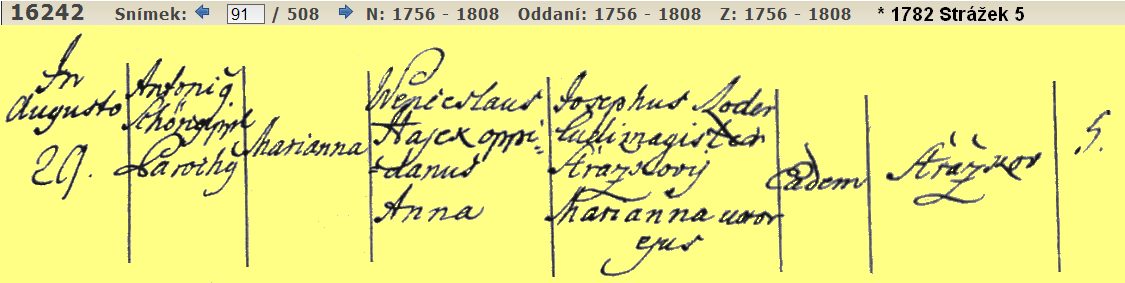 16242 Snímek: 91 / 508 N: 1756 - 1808 Oddaní: 1756 - 1808 Z: 1756 - 1808 * 1782 Strážek 5
In
Augusto
29.
Antonij
Parochý
Marianna
Wenceslaus
Hajek oppi=
danus
Anna
Josephus Roder
Ludimagister
Strážkový
Marianna uxor
ejus
Eadem
Strážkov
5.